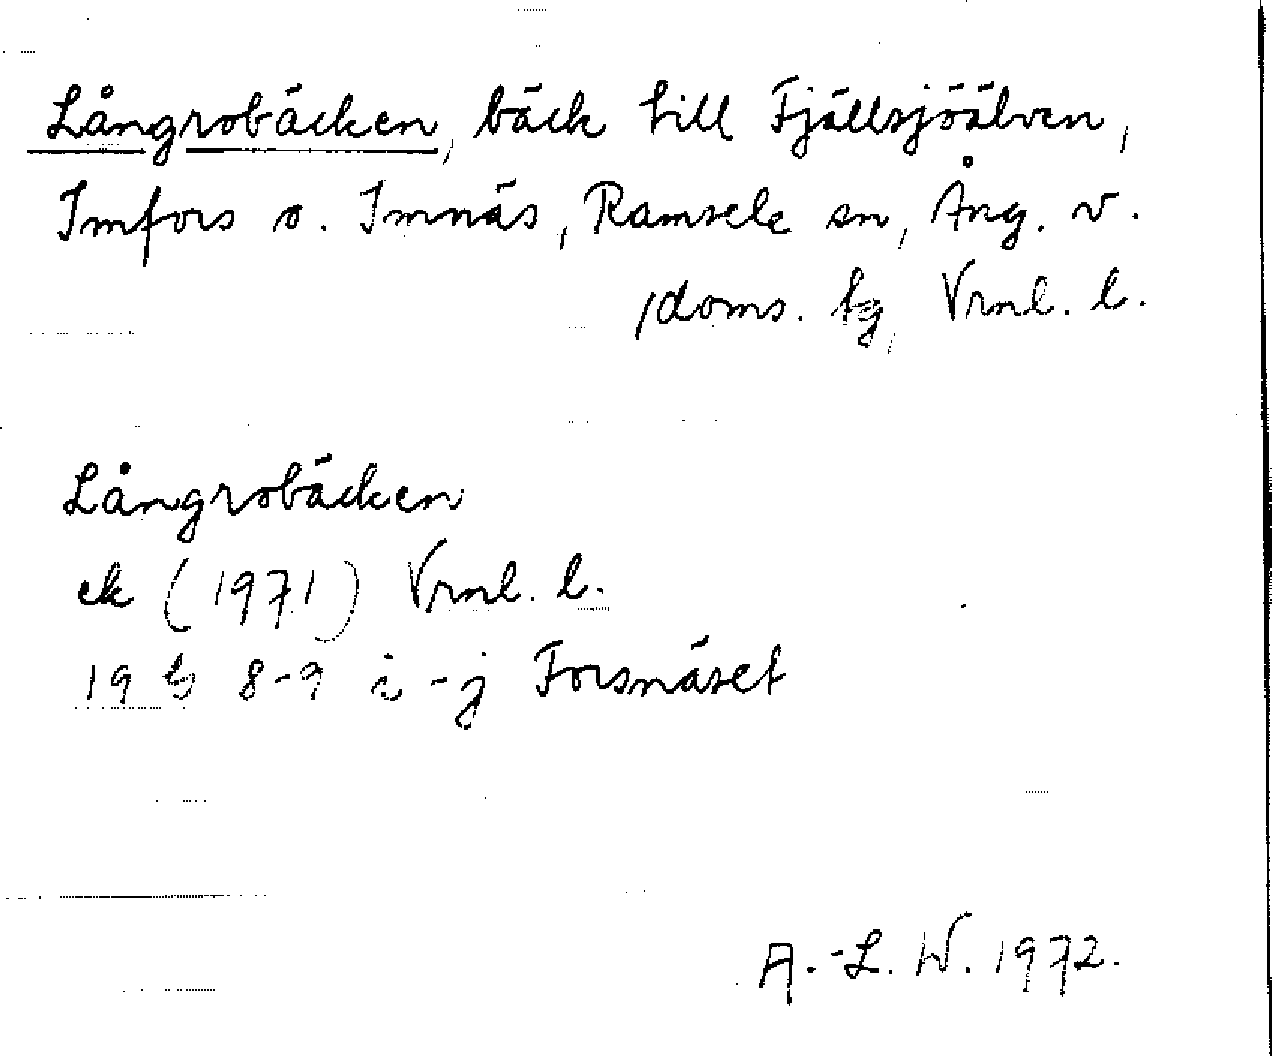 Långrobäcken, bäck till Fjällsjöälven,
Imfors o. Imnäs, Ramsele sn, Ång. v.
/doms. tg, Vrnl. l.
Långrobäcken
ek (1971) Vrnl. l.
19 G 8-9 i-j Forsnäset
A.-L. W. 1972.